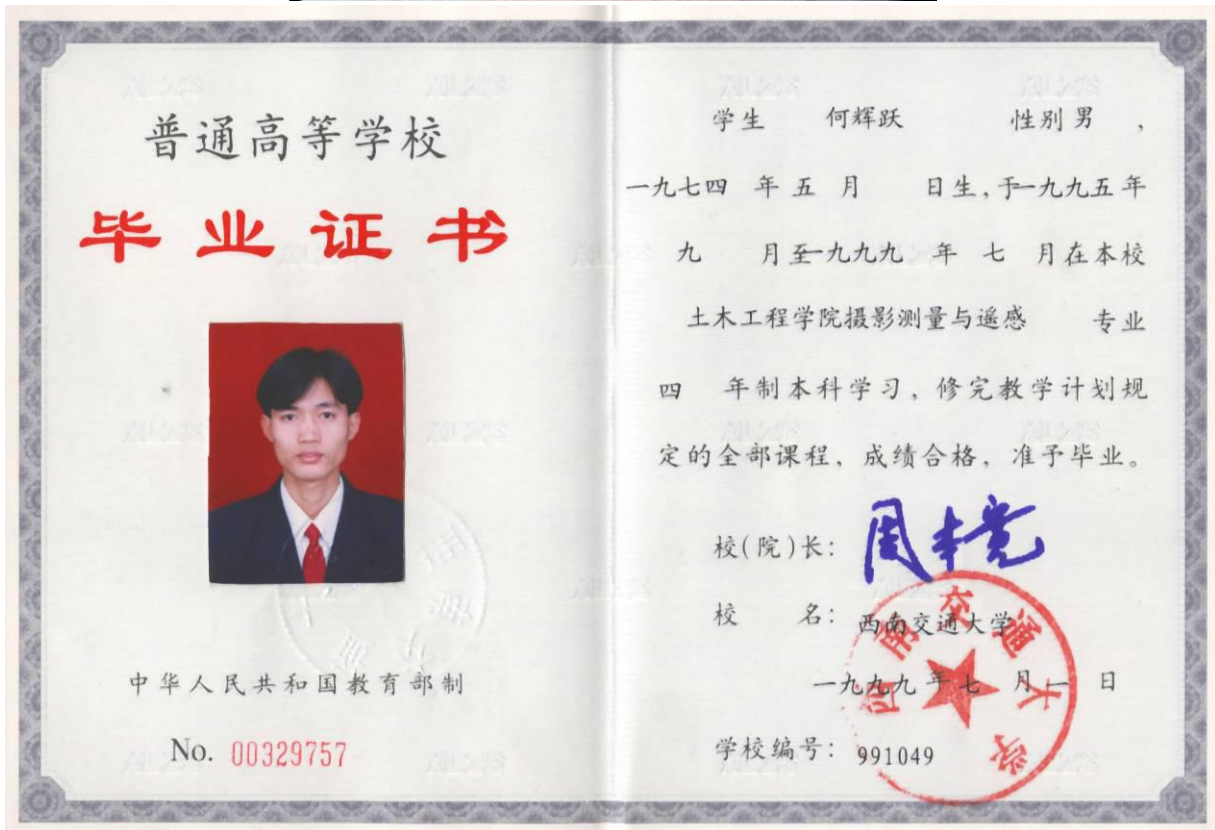 普通高等学校
毕业证书
中华人民共和国教育部制
No. 00329757
学生 何辉跃 性别 男 ,
一九七四 年 五 月 日生,于一九九五年
九 月至一九九九 年 七 月在本校
土木工程学院摄影测量与遥感 专业
四 年制本科学习,修完教学计划规
定的全部课程,成绩合格,准予毕业。
校(院)长:
校 名: 西南交通大学
一九九九 年 七 月 一 日
学校编号: 991049
西南交通大学